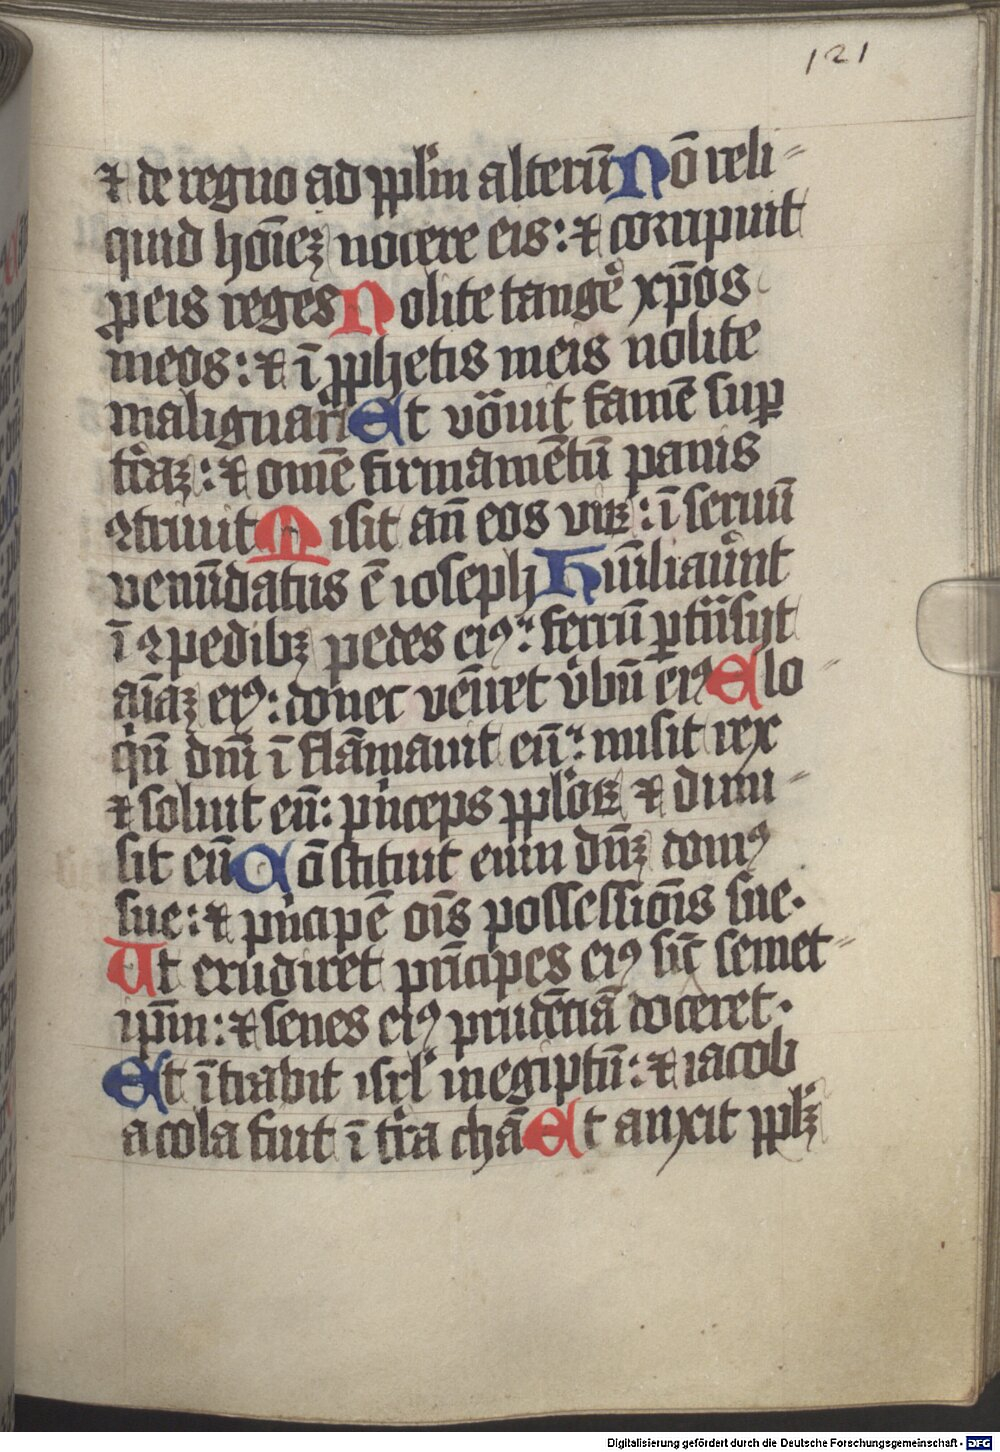 121
⁊ de regno ad pplm̄ alterū Nō reli⸗
quid hōieꝫ nocere eis: ⁊ coꝛꝛipuit
ꝓ eis reges Nolite tange᷑ xp̄os
meos: ⁊ ī ꝓphetis meis nolite
malignari Et vöuit famē suꝑ
tr̄aꝫ: ⁊ omē firmamētū panis
ꝯtriuit Misit an̄ eos viꝝ: ī seruū
venūdatus ē ioseph Humiliaūnt
ī ꝯpedibꝫ pedes eiꝰ: ferrū ꝑtrāsijt
aīaꝫ eiꝰ: donec vēiret v̄bū eiꝰ Elo
quū dnī ī flāmauit eū: misit rex
⁊ soluit eū: pⁱnceps pploꝝ ⁊ dimi⸗
sit eū Cōstituit eum dn̄ꝫ domꝰ
sue: ⁊ pⁱncipē oīs possessiōis sue.
Ut erudiret prīcipes eiꝰ sic̄ semet⸗
ipm̄: ⁊ senes eiꝰ prudētiā doceret.
Et ītrabit isrl̄ in egiptū: ⁊ iacob
acola fuit ī tr̄a chā Et auxit pplꝫ
Digitalisierung gefördert durch die Deutsche Forschungsgemeinschaft - DFG